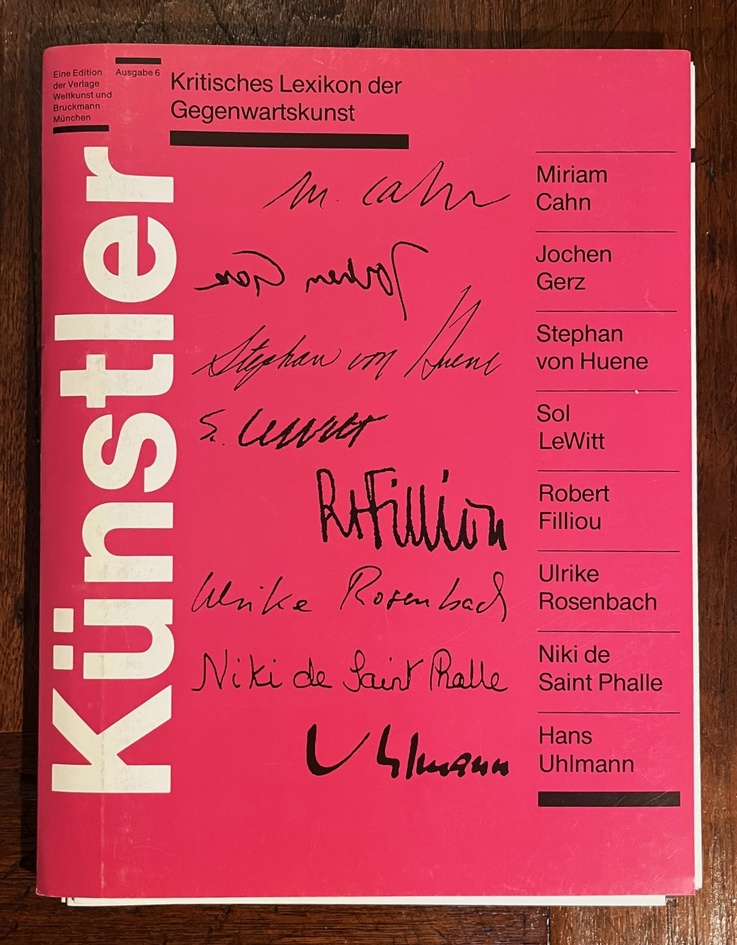 Eine Edition
der Verlage
Weltkunst und
Bruckmann
München
Ausgabe 6
Kritisches Lexikon der
Gegenwartskunst
Künstler
M. Cahn
Jochen Gerz
Stephan von Huene
S. LeWitt
R Filliou
Ulrike Rosenbach
Niki de Saint Phalle
Uhlmann
Miriam
Cahn
Jochen
Gerz
Stephan
von Huene
Sol
LeWitt
Robert
Filliou
Ulrike
Rosenbach
Niki de
Saint Phalle
Hans
Uhlmann